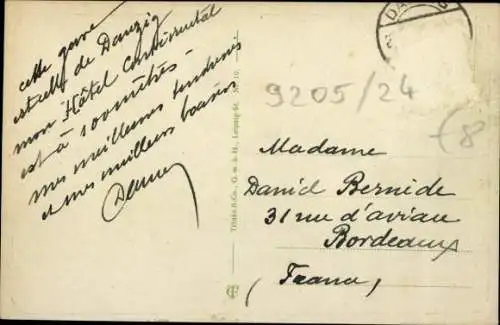 cette gare
est celle de Danzig
mon Hôtel Continental
est à 100 mètres -
mes meilleures tendresses
et mes meilleurs baisers
Trinks & Co., G. m. b. H., Leipzig
9205/24
(8
DA
Madame
Daniel Bernide
31 rue d'aviau
Bordeaux
(France)